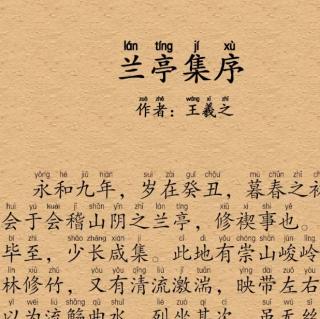 lán tíng jí xù
兰亭集序
zuò zhě wáng xī zhī
作者：王羲之
yǒng hé jiǔ nián suì zài guǐ chǒu mù chūn zhī
永和九年，岁在癸丑，暮春之初
huì yú kuài jī shān yīn zhī lán tíng xiū xì shì yě
会于会稽山阴之兰亭，修禊事也。
bì zhì shào zhǎng xián jí cǐ dì yǒu chóng shān jùn lǐng
毕至，少长咸集。此地有崇山峻岭
lín xiū zhú yòu yǒu qīng liú jī tuān yìng dài zuǒ yòu
林修竹，又有清流激湍，映带左右
yǐ wéi liú shāng qū shuǐ liè zuò qí cì suī wú sī
以为流觞曲水，列坐其次。虽无丝